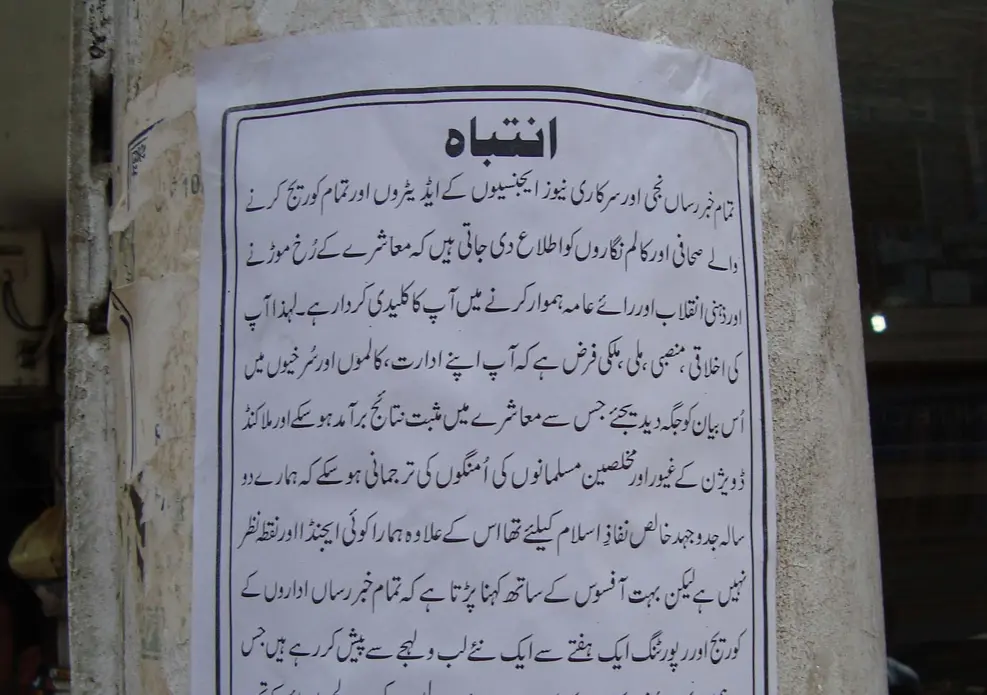 انتباہ
تمام خبر رساں نجی اور سرکاری نیوز ایجنسیوں کے ایڈیٹروں اور تمام کوریج کرنے
والے صحافی اور کالم نگاروں کو اطلاع دی جاتی ہیں کہ معاشرے کے رُخ موڑنے
اور ذہنی انقلاب اور رائے عامہ ہموار کرنے میں آپ کا کلیدی کردار ہے۔ لہذا آپ
کی اخلاقی، منصبی، ملی، ملکی فرض ہے کہ آپ اپنے ادارت، کالموں اور سُرخیوں میں
اُس بیان کو جگہ دیدیجئے جس سے معاشرے میں مثبت نتائج برآمد ہو سکے اور ملاکنڈ
ڈویژن کے غیور اور مخلصین مسلمانوں کی اُمنگوں کی ترجمانی ہو سکے کہ ہمارے دو
سالہ جدوجہد خالص نفاذِ اسلام کیلئے تھا اس کے علاوہ ہمارا کوئی ایجنڈا اور نقطہ نظر
نہیں ہے لیکن بہت آفسوس کے ساتھ کہنا پڑتا ہے کہ تمام خبر رساں اداروں کے
کوریج اور رپورٹنگ ایک ہفتے سے ایک نئے لب و لہجے سے پیش کر رہے ہیں جس